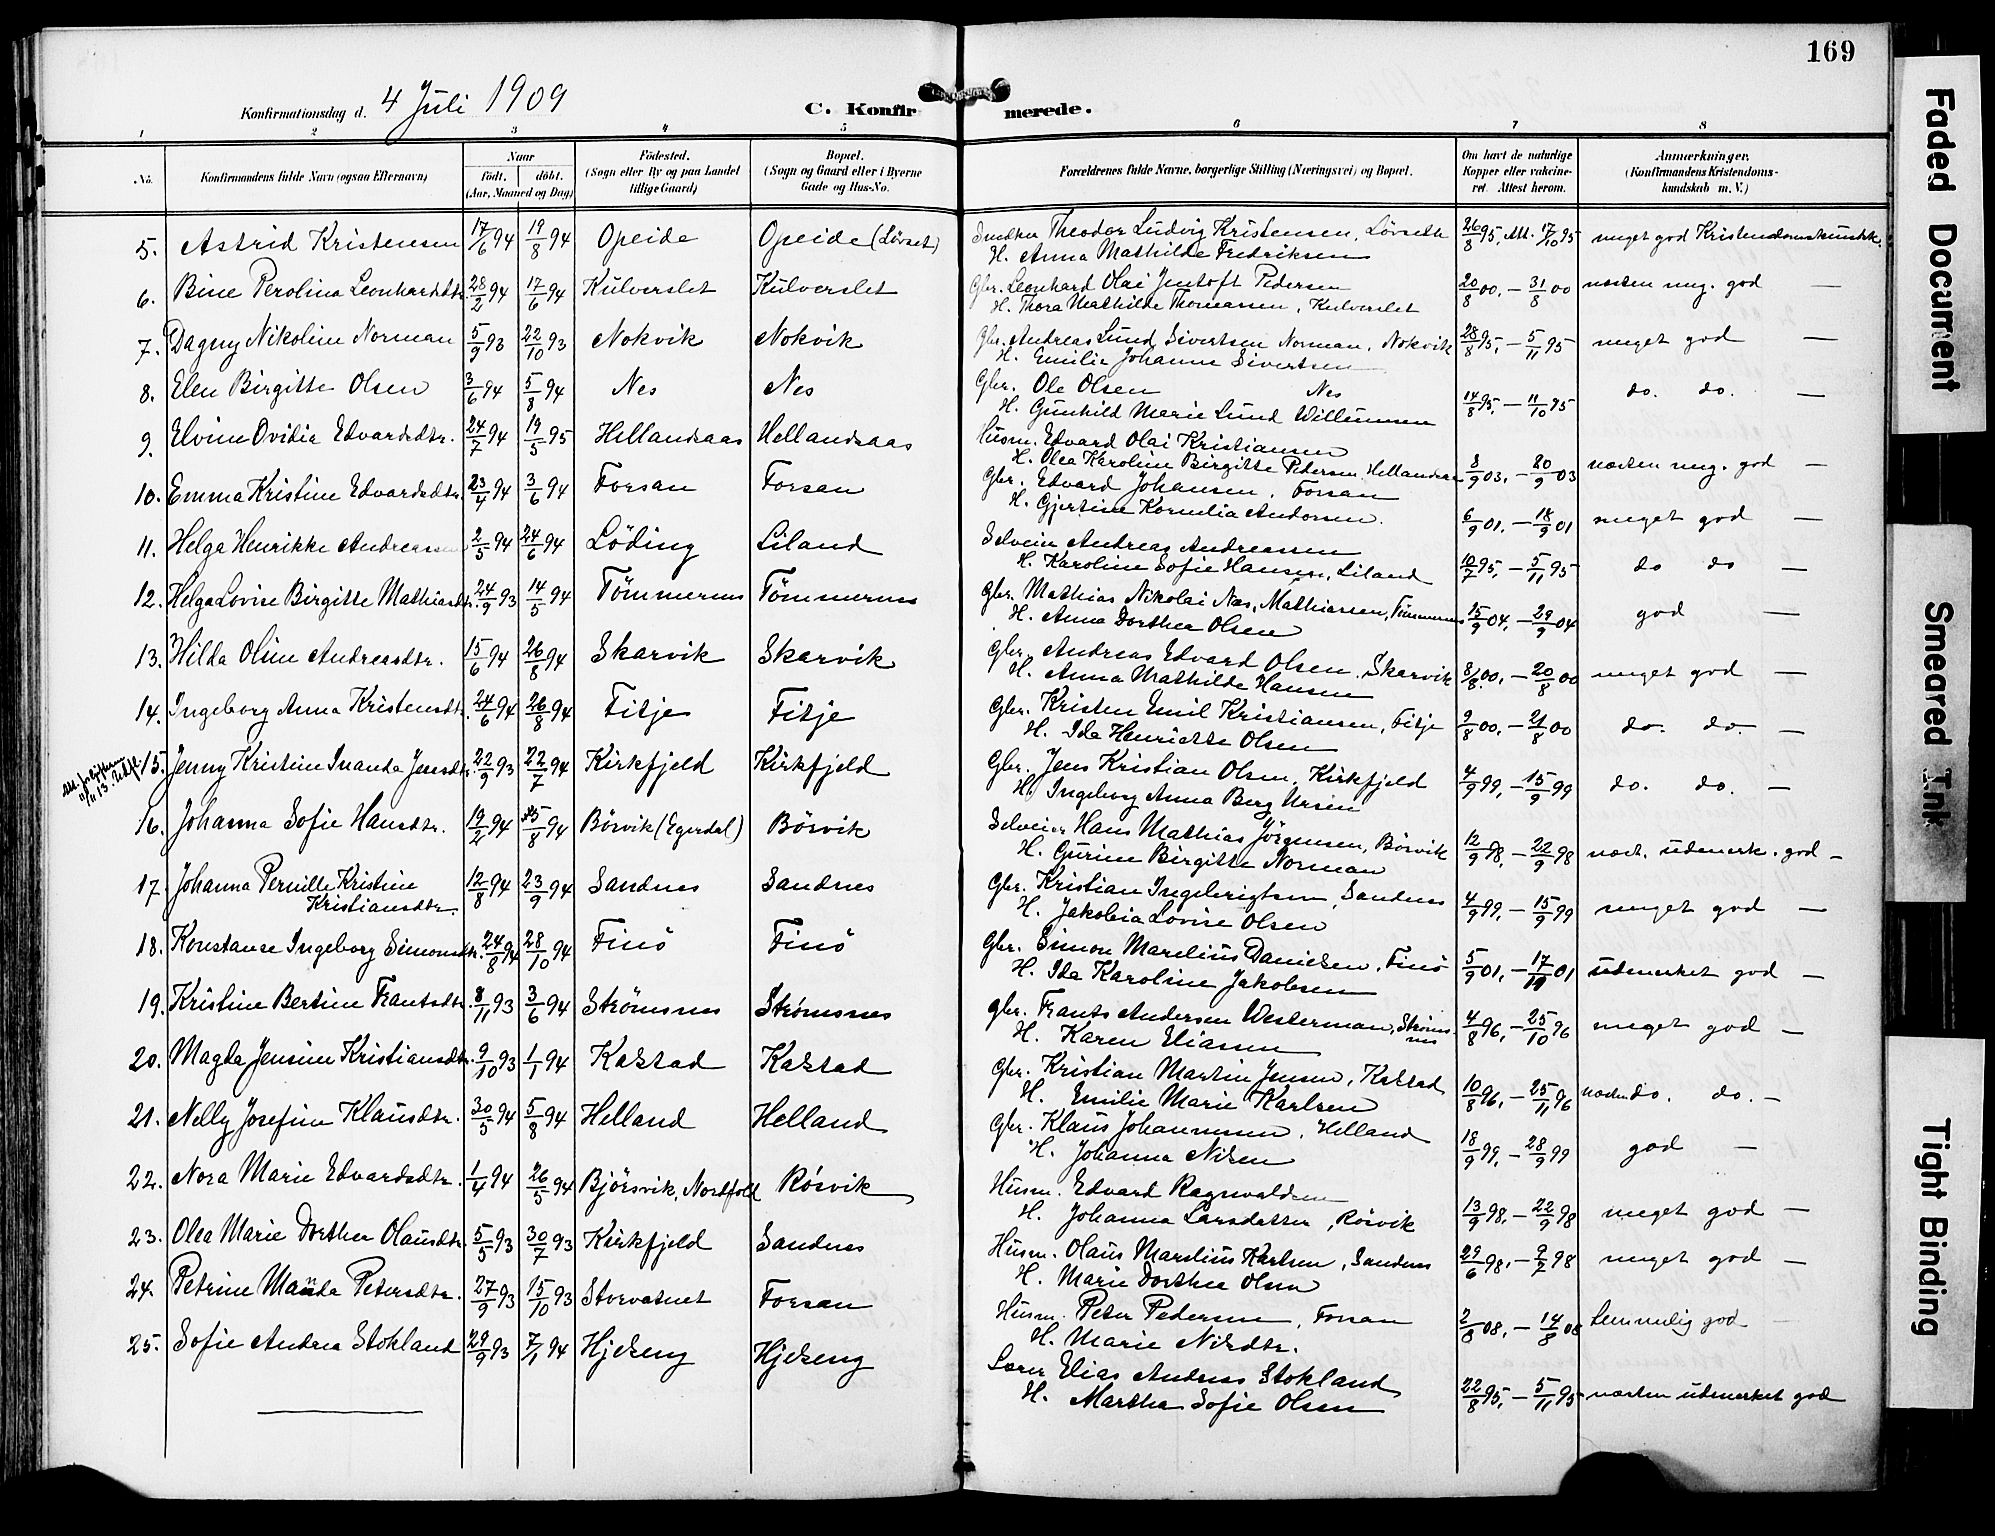 169
Konfirmationsdag d. 4 Juli 1909
C. Konfirmerede.
1 2 3 4 5 6 7 8
No.
Konfirmandens fulde Navn (ogsaa Efternavn)
Naar
født. døbt.
(Aar, Maaned og Dag)
Fødested.
(Sogn eller By og paa Landet tillige Gaard)
Bopæl.
(Sogn og Gaard eller i Byerne Gade og Hus-No.
Forældrenes fulde Navne, borgerlige Stilling (Næringsvei) og Bopæl.
Om havt de naturlige Kopper eller vakcineret. Attest herom.
Anmærkninger.
(Konfirmandens Kristendomskundskab m. V.)
5. Astrid Kristensen 17/6 94 19/8 94 Opeide Opeide (Lövset) Theodor Ludvig Kristensen, Lövseth 26/8 95, Att. 17/10 95 meget god Kristendomskundsk.
H. Anna Mathilde Fredriksen
6. Bine Perolina Leonhardsdtr. 28/2 94 17/6 94 Kulverslet Kulverslet Gbr. Leonhard Olai Jentoft Pedersen 20/8 00, — 31/8 00 næsten meg. god —
H. Thora Mathilde Thomassen, Kulverslet
7. Dagny Nikoline Norman 5/9 93 22/10 93 Nokvik Nokvik Gbr. Andreas Lund Sivertsen Norman, Nokvik 28/8 95, — 5/11 95 meget god —
H. Emilie Johanne Sivertsen
8. Elen Birgitte Olsen 3/6 94 5/8 94 Nes Nes Gbr. Ole Olsen Nes 14/8 95, — 11/10 95 do. do. —
H. Gunhild Marie Lund Willumsen
9. Elvine Ovidia Edvardsdtr. 24/7 94 19/5 95 Hellandsaas Hellandsaas Husm. Edvard Olai Kristiansen
H. Olea Karoline Birgitte Pedersen, Hellandsaas 8/9 03, — 20/9 03 næsten meg. god —
10. Emma Kristine Edvardsdtr. 23/4 94 3/6 94 Forsan Forsan Gbr. Edvard Johansen, Forsan
H. Gjertine Kornelia Andorsen. 6/9 01, — 18/9 01 meget god —
11. Helga Henrikke Andreassen 2/5 94 24/6 94 Löding Liland Selveier Andreas Andreassen
H. Karoline Sofie Hansen, Liland 10/7 95, — 5/11 95 do do —
12. Helga Lovise Birgitte Mathiasdtr. 24/9 93 14/5 94 Tömmernes Tömmernes Gbr. Mathias Nikolai Nas. Mathiassen, Tömmernes 15/9 04, — 29/9 04 god —
H. Anna Dorthea Olsen
13. Hilda Oline Andreasdtr. 15/6 94 26/8 94 Skarvik Skarvik Gbr. Andreas Edvard Olsen, Skarvik 8/8 00, — 20/8 00 meget god —
H. Anna Mathilde Hansen
14. Ingeborg Anna Kristensdtr. 24/6 94 26/8 94 Fitje Fitje Gbr. Kristen Emil Kristiansen, Fitje 9/8 00, — 21/8 00 do. do. —
H. Ida Henriette Olsen
15. Jenny Kristine Inanda Jensdtr. 22/9 93 22/7 94 Kirkfjeld Kirkfjeld Gbr. Jens Kristian Olsen, Kirkfjeld 4/9 99, — 15/9 99 do. do. —
H. Ingeborg Anna Berg Ursin
16. Johanna Sofie Hansdtr. 19/2 94 5/8 94 Bösvik (Egerdal) Bösvik Selveier Hans Mathias Jörgensen, Bösvik 12/9 98, — 22/9 98 næst. udmerk. god —
H. Gurine Birgitte Norman
17. Johanna Pernille Kristine Kristiansdtr. 12/8 94 23/9 94 Sandnes Sandnes Gbr. Kristian Ingebrigtsen, Sandnes 4/9 99, — 15/9 99 meget god —
H. Jakobia Lovise Olsen
18. Konstanse Ingeborg Simonsdtr. 24/8 94 28/10 94 Finö Finö Gbr. Simon Marelius Danielsen, Finö 5/9 01, — 17/10 01 udmerket god —
H. Ida Karoline Jakobsen
19. Kristine Bertine Frantsdtr. 8/11 93 3/6 94 Strömsnes Strömsnes Gbr. Frants Andersen Westerman, Strömsnes 4/8 96, — 25/10 96 meget god —
H. Karen Eliassen
20. Magda Jensine Kristiansdtr. 9/10 93 1/1 94 Kalstad Kalstad Gbr. Kristian Martin Jensen, Kalstad 10/8 96, — 25/11 96 næsten do. do. —
H. Emilie Marie Karlsen
21. Nelly Josefine Klausdtr. 30/5 94 5/8 94 Helland Helland Gbr. Klaus Johannessen, Helland 18/9 99, — 28/9 99 god —
H. Johanna Nilsen
22. Nora Marie Edvardsdtr. 1/4 94 26/5 94 Björsvik, Nordfold Rösvik Husm. Edvard Ragnvaldsen
H. Johanna Larsdatter, Rösvik 13/9 98, — 22/9 98 meget god —
23. Olea Marie Dorthea Olausdtr. 5/5 93 30/7 93 Kirkfjeld Sandnes Husm. Olaus Marelius Karlsen, Sandnes 29/6 98, — 9/7 98 meget god —
H. Marie Dorthea Olsen
24. Petrine Manda Petersdtr. 27/9 93 15/10 93 Storvatnet Forsan Husm. Peter Pedersen, Forsan 2/8 08, — 14/8 08 temmelig god
H. Marie Nilsdtr.
25. Sofie Andrea Stokland 29/9 93 7/1 94 Hjelseng Hjelseng Lærer Elias Andreas Stokland
H. Martha Sofie Olsen 22/8 95, — 5/11 95 næsten udmerket god
Faded Document
Smeared Ink
Tight Binding